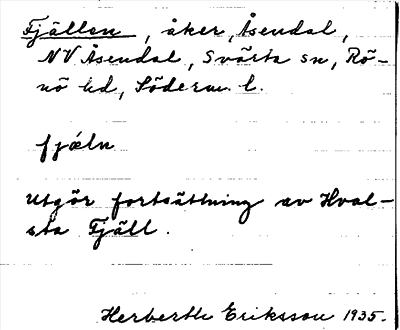 Fjällen, åker, Åsendal,
NV Åsendal, Svärta sn, Rö-
nö hd, Söderm. l.
fjäln
Utgör fortsättning av Hval-
sta Fjäll.
Herberth Eriksson 1935.